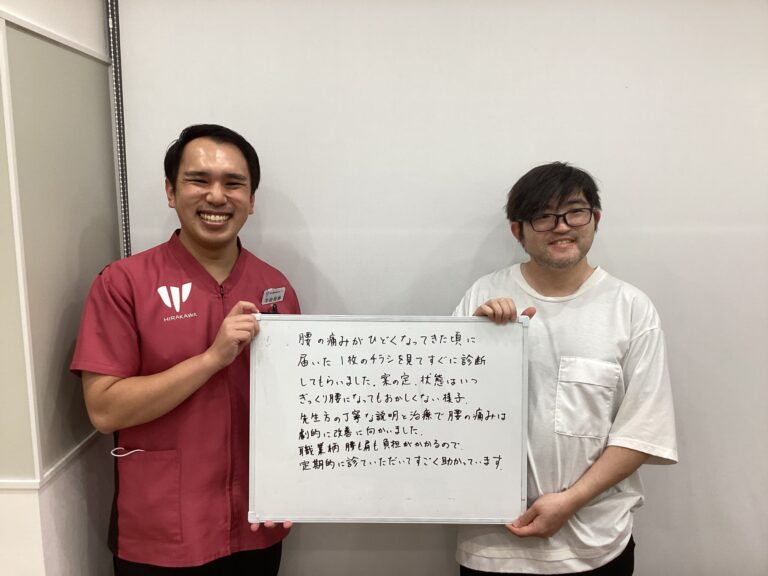 HIRAKAWA
腰の痛みがひどくなってきた頃に
届いた1枚のチラシを見てすぐに診断
してもらいました。案の定、状態はいつ
ぎっくり腰になってもおかしくない様子。
先生方の丁寧な説明と治療で腰の痛みは
劇的に改善に向かいました
職業柄 腰も肩も負担がかかるので
定期的に診ていただいてすごく助かっています。